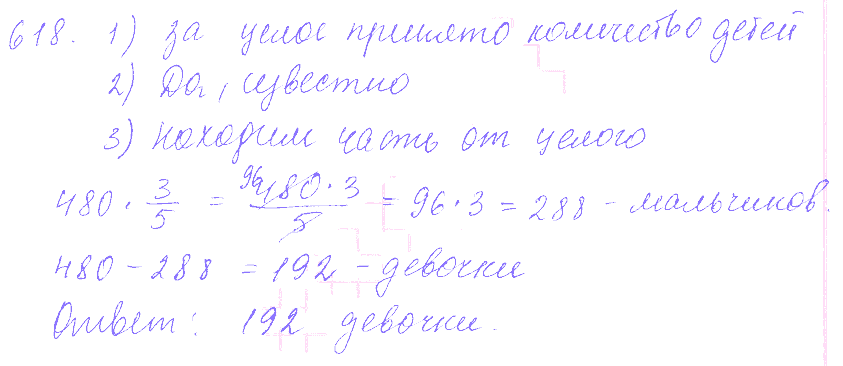 618. 1) За целое принято количество детей
2) Да, известно
3) Находим часть от целого
480 · 3/5 = 96 480 · 3 / 5 = 96 · 3 = 288 - мальчиков.
480 - 288 = 192 - девочки
Ответ: 192 девочки.